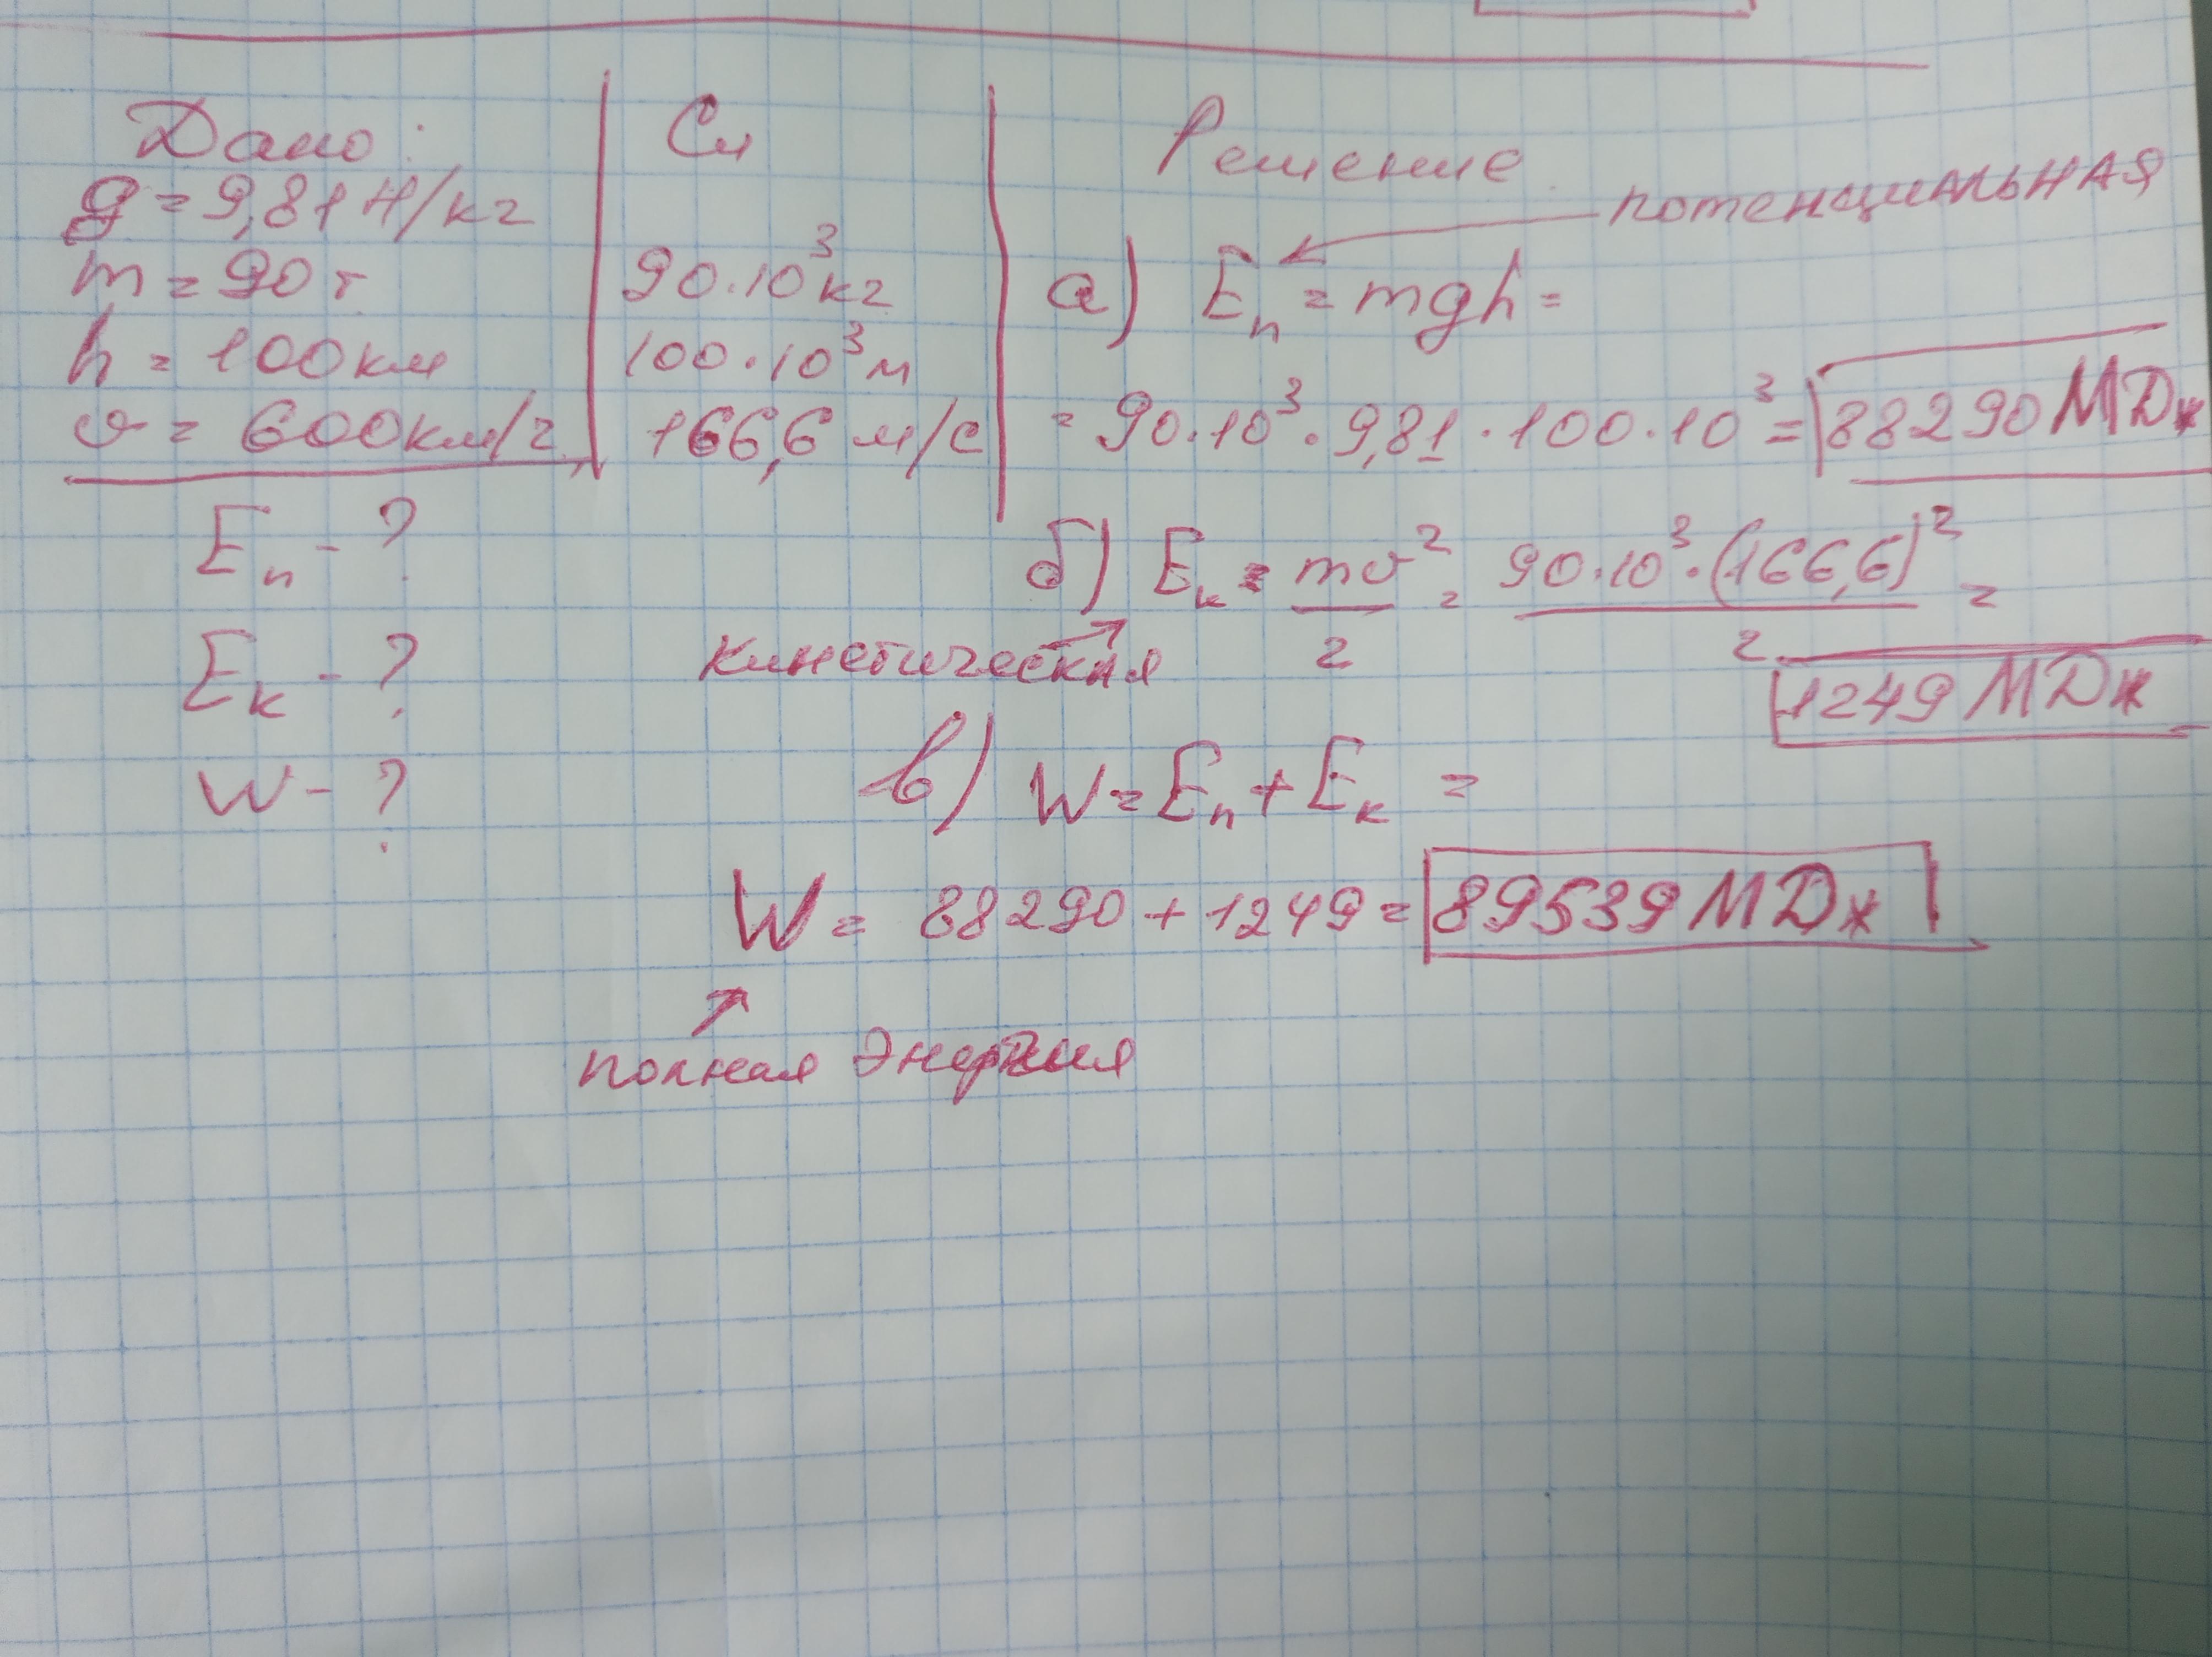 Дано:
g = 9,81 Н/кг
m = 90 т
h = 100 км
υ = 600 км/ч
Eп - ?
Eк - ?
W - ?
Си
90·10³ кг
100·10³ м
166,6 м/с
Решение
потенциальная
а) Eп = mgh =
= 90·10³·9,81·100·10³ = 88290 МДж
б) Eк = mυ²/2 = 90·10³·(166,6)²/2 =
кинетическая
1249 МДж
в) W = Eп + Eк =
W = 88290 + 1249 = 89539 МДж
полная энергия